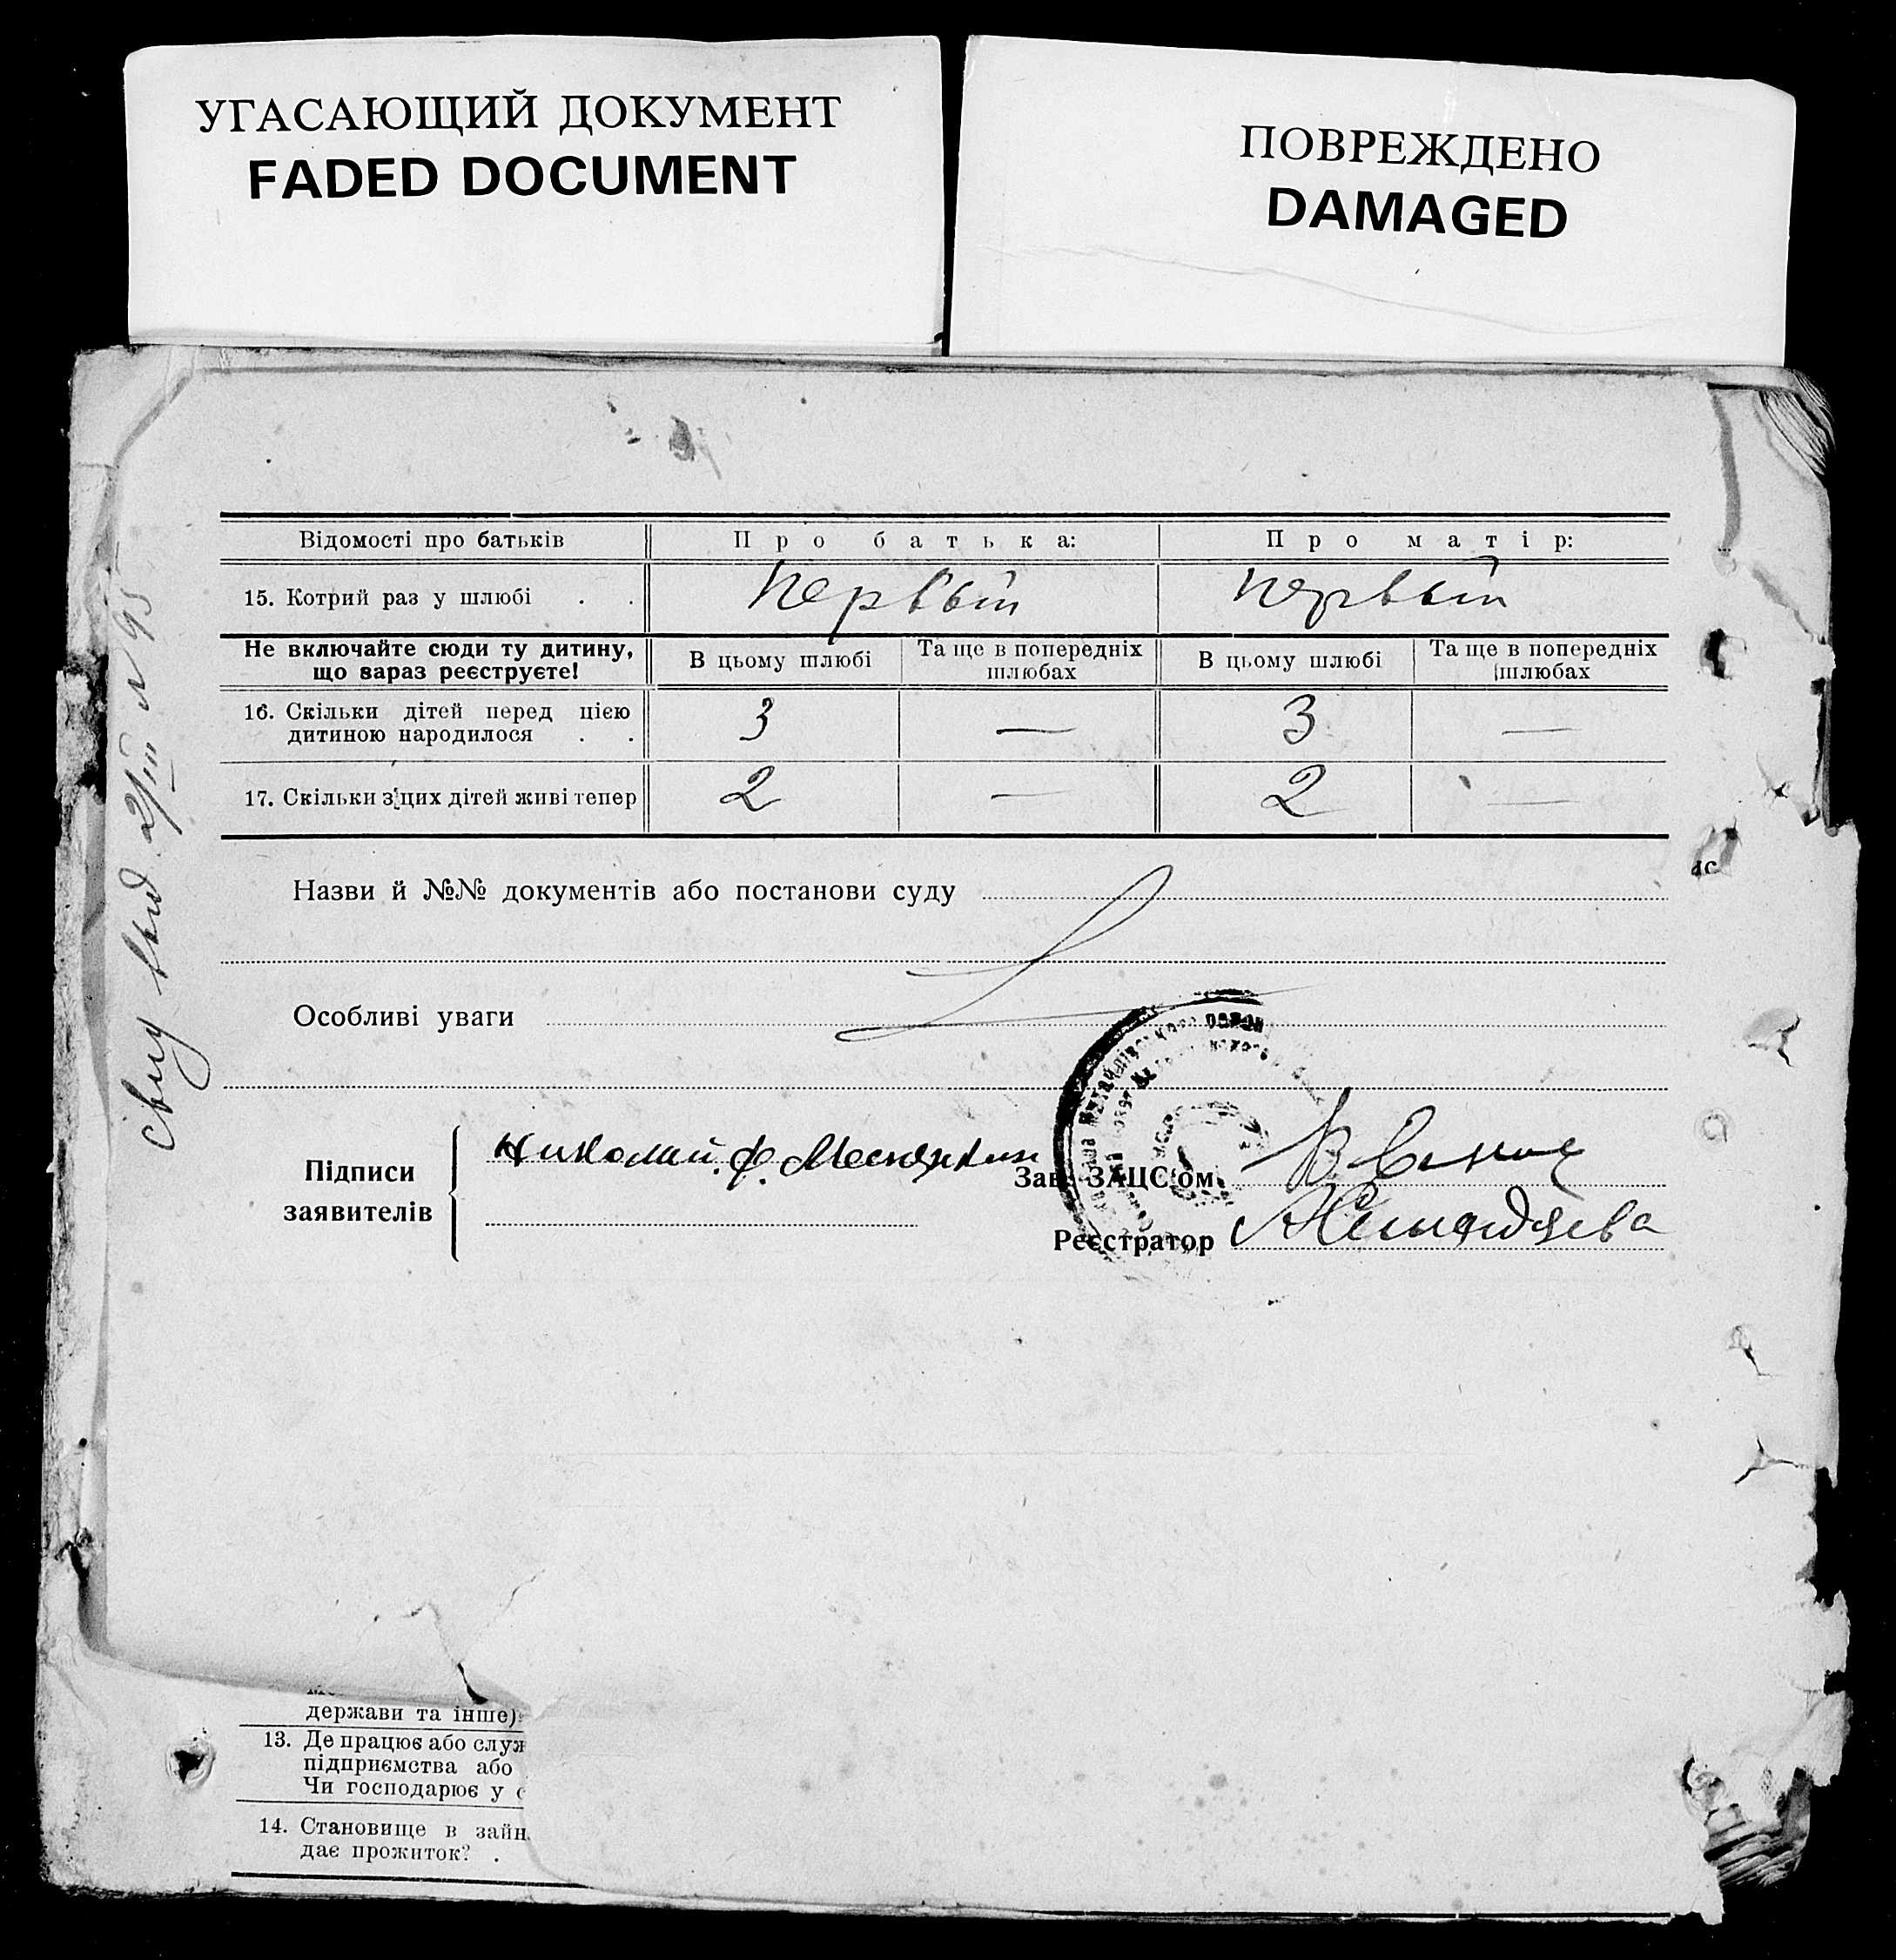 УГАСАЮЩИЙ ДОКУМЕНТ
FADED DOCUMENT
ПОВРЕЖДЕНО
DAMAGED
Відомості про батьків Про батька: Про матір:
15. Котрий раз у шлюбі . . первый первый
Не включайте сюди ту дитину, що зараз реєструєте! В цьому шлюбі Та ще в попередніх шлюбах В цьому шлюбі Та ще в попередніх шлюбах
16. Скільки дітей перед цією
дитиною народилося . . 3 — 3 —
17. Скільки з цих дітей живі тепер 2 — 2 —
Назви й №№ документів або постанови суду
Особливі уваги
Підписи
заявителів
Николай Ф.
Зав. ЗАЦС'ом
Реєстратор
выд 2/III № 95
ас
держави та інше)
13. Де працює або служ
підприємства або
Чи господарює у с
14. Становище в зайн
дає прожиток? .